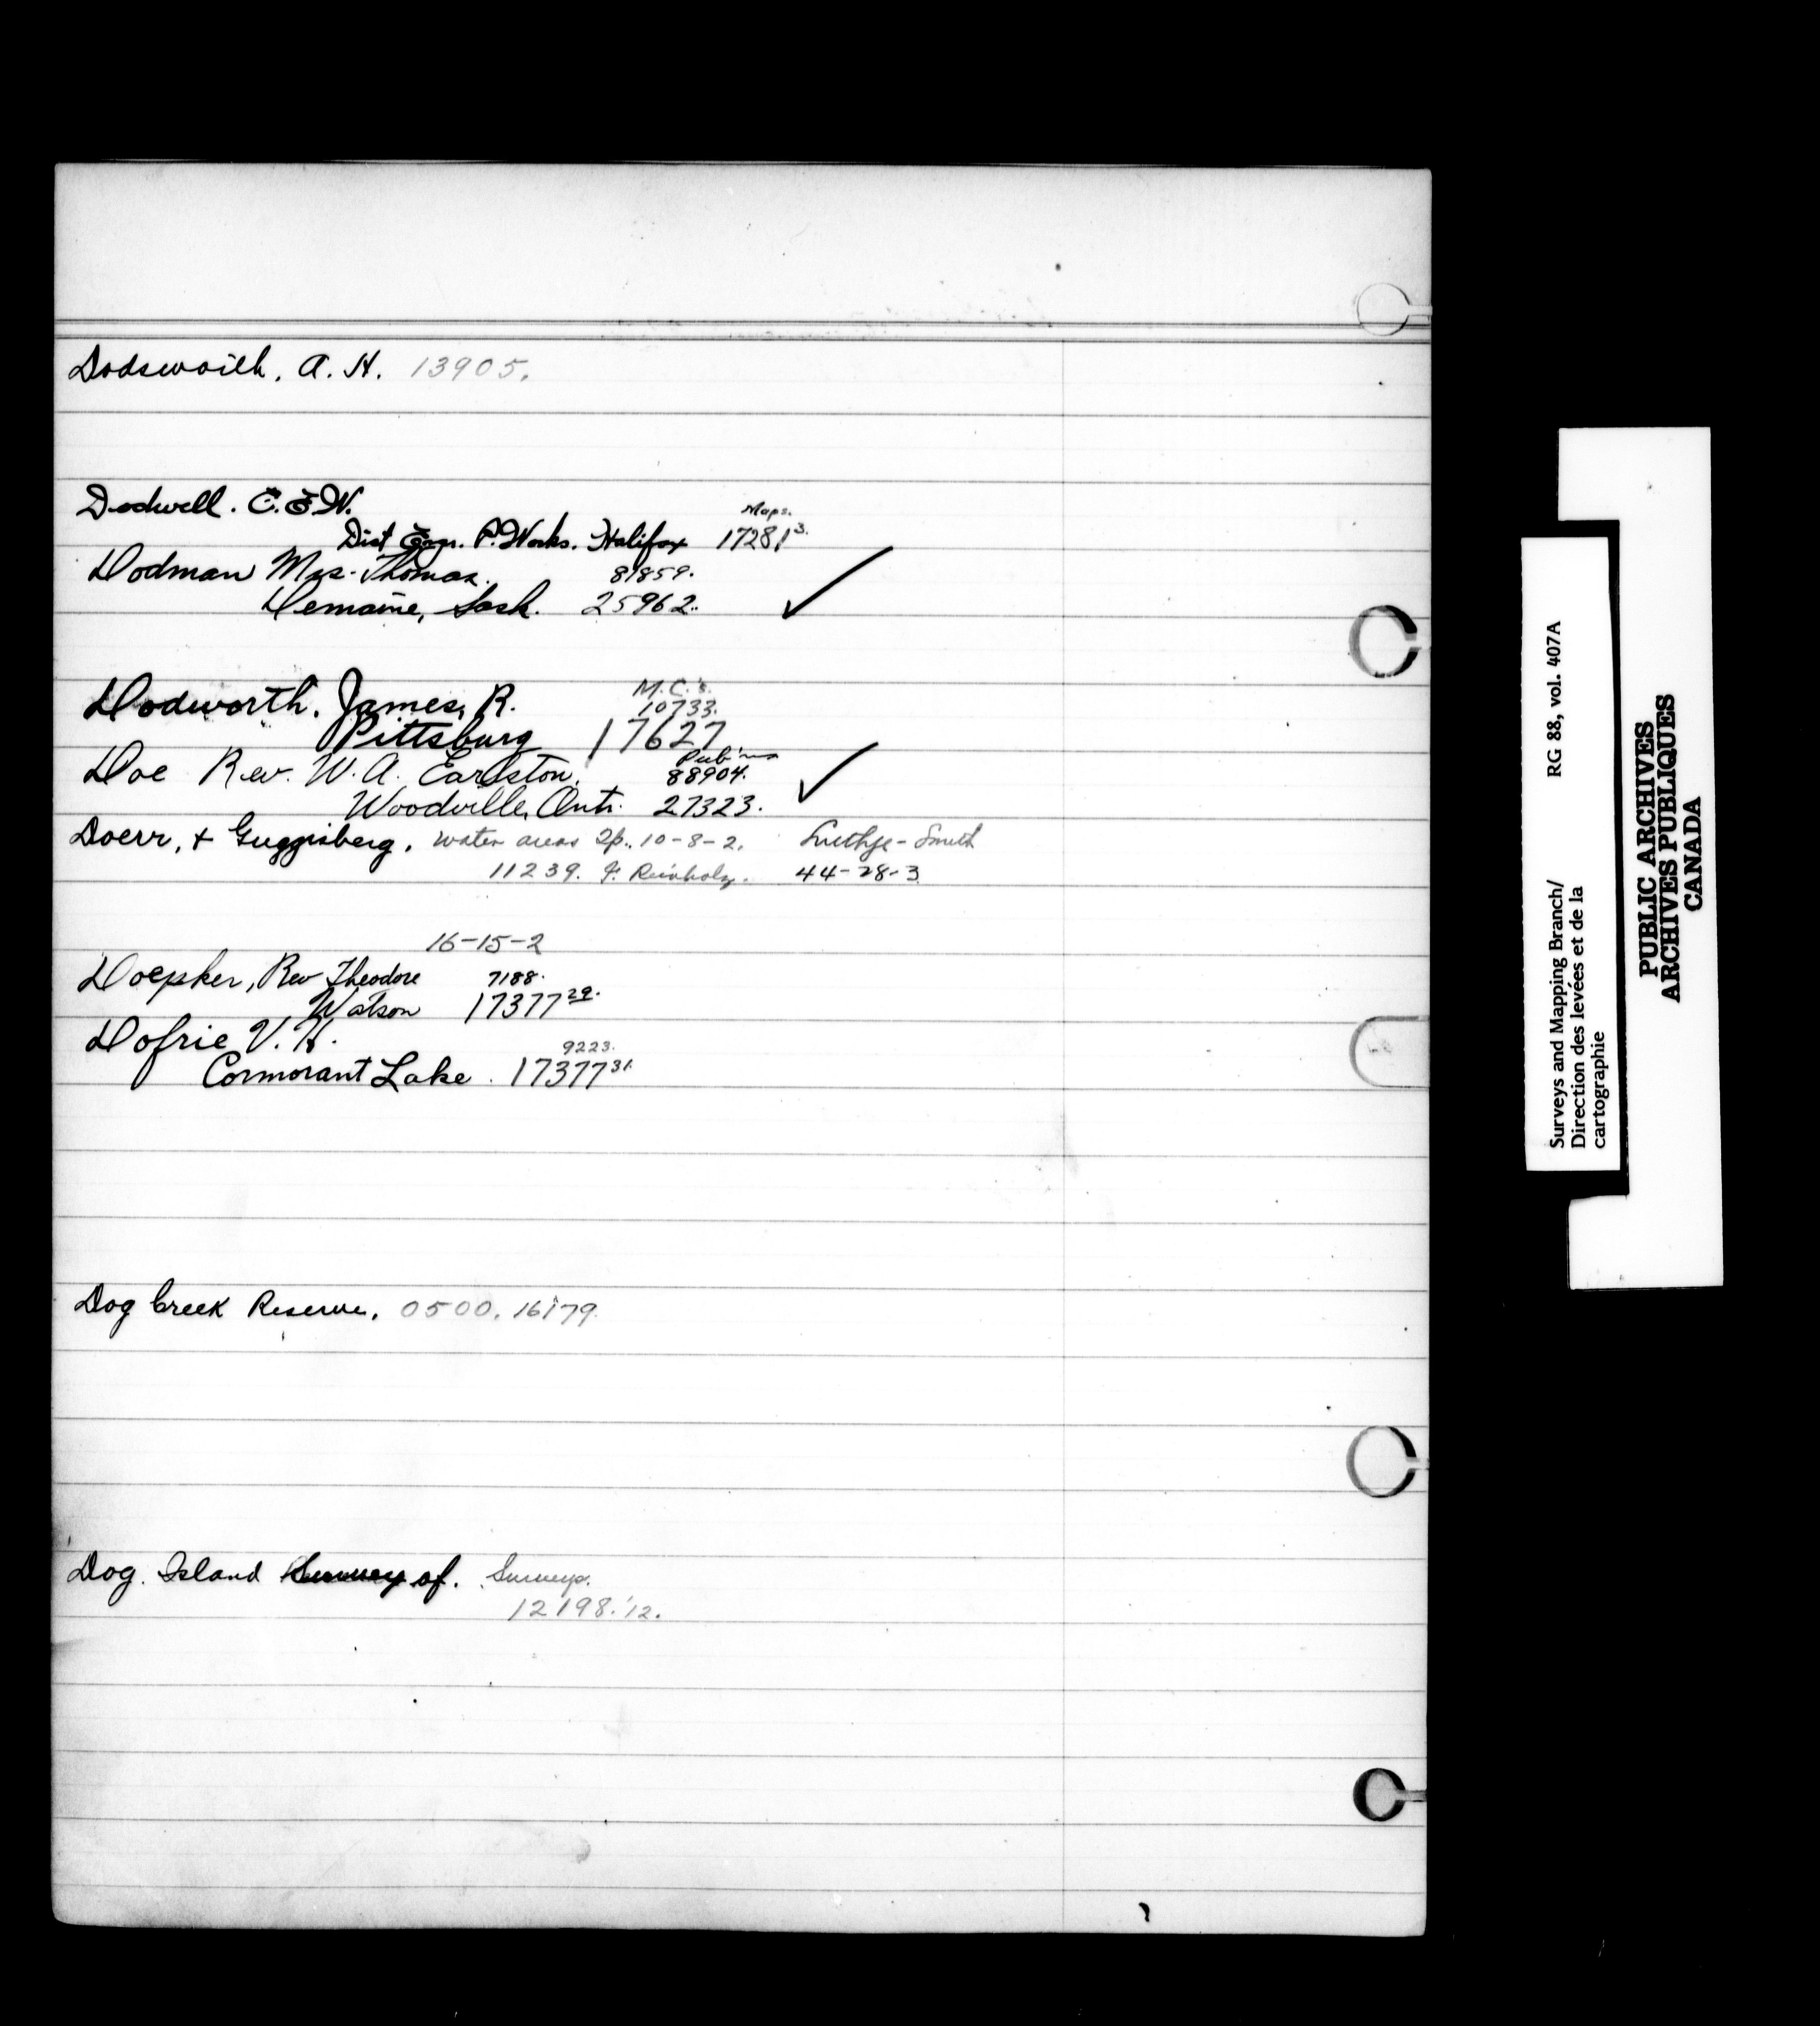 Dodsworth, A. H. 13905.
Dodwell. C. E. W. Maps.
Dist Engr. P. Works. Halifax 17281 3.
Dodman Mrs. Thomas. 81859.
Demaine, Sask. 25962. ✓
Dodworth, James, R. M.C.'s. 10733.
Pittsburg 17627
Doe Rev. W. A. Earlston, Pub'ns 88904.
Woodville, Ont. 27323. ✓
Doerr, + Guggisberg, water areas Tp. 10-8-2. Luethje - Smith
11239. F. Reinholz. 44-28-3
16-15-2
Doepker, Rev Theodore 7188.
Watson 17377 29.
Dofrie V. H. 9223.
Cormorant Lake. 17377 31.
Dog Creek Reserve, 0500, 16179.
Dog Island Survey of. Surveys.
12198.'12.
RG 88, vol. 407A
Surveys and Mapping Branch/
Direction des levées et de la
cartographie
PUBLIC ARCHIVES
ARCHIVES PUBLIQUES
CANADA